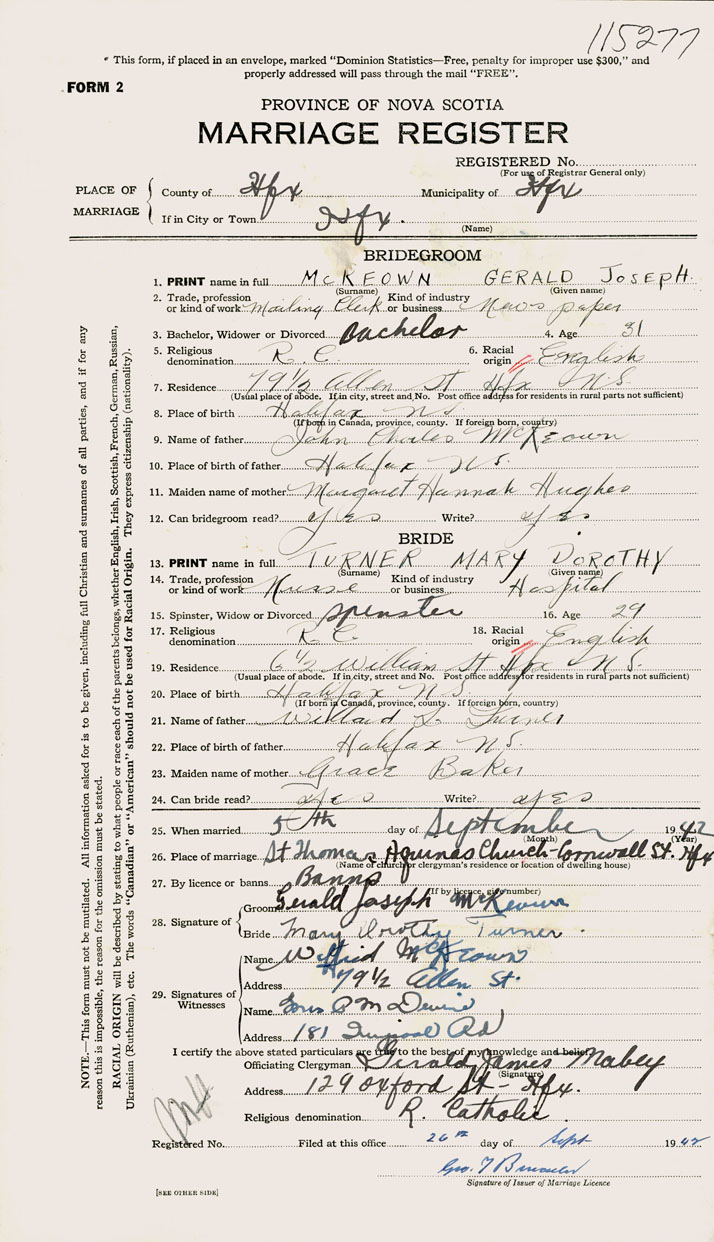 115277
* This form, if placed in an envelope, marked "Dominion Statistics—Free, penalty for improper use $300," and
properly addressed will pass through the mail "FREE".
FORM 2
PROVINCE OF NOVA SCOTIA
MARRIAGE REGISTER
REGISTERED No.
(For use of Registrar General only)
PLACE OF MARRIAGE
County of Hfx Municipality of Hfx
If in City or Town Hfx.
(Name)
BRIDEGROOM
1. PRINT name in full McKEOWN GERALD JOSEPH
(Surname) (Given name)
2. Trade, profession or kind of work Mailing Clerk Kind of industry or business News paper
3. Bachelor, Widower or Divorced Bachelor 4. Age 31
5. Religious denomination R. C. 6. Racial origin English
7. Residence 79 1/2 Allen St Hfx N.S.
(Usual place of abode. If in city, street and No. Post office address for residents in rural parts not sufficient)
8. Place of birth Halifax N S.
(If born in Canada, province, county. If foreign born, country)
9. Name of father John Charles McKeown
10. Place of birth of father Halifax N.S.
11. Maiden name of mother Margaret Hannah Hughes
12. Can bridegroom read? yes Write? yes
BRIDE
13. PRINT name in full TURNER MARY DOROTHY
(Surname) (Given name)
14. Trade, profession or kind of work Nurse Kind of industry or business Hospital
15. Spinster, Widow or Divorced spinster 16. Age 29
17. Religious denomination R. C. 18. Racial origin English
19. Residence 6 1/2 William St Hfx N.S.
(Usual place of abode. If in city, street and No. Post office address for residents in rural parts not sufficient)
20. Place of birth Halifax N S.
(If born in Canada, province, county. If foreign born, country)
21. Name of father Willard Turner
22. Place of birth of father Halifax N.S.
23. Maiden name of mother Grace Baker
24. Can bride read? yes Write? yes
25. When married 5th day of September 1942
(Month) (Year)
26. Place of marriage St Thomas Aquinas Church-Cornwall St. Hfx
(Name of church or clergyman's residence or location of dwelling house)
27. By licence or banns Banns
(If by licence, give number)
28. Signature of
Groom Gerald Joseph McKeown
Bride Mary Dorothy Turner.
29. Signatures of Witnesses
Name Wilfred McKeown
Address 79 1/2 Allen St.
Name
Address 181 Rd
I certify the above stated particulars are true to the best of my knowledge and belief.
Officiating Clergyman Gerald James Mabey
(Signature)
Address 129 Oxford St - Hfx.
Religious denomination R. Catholic
Registered No. Filed at this office 26th day of Sept 1942
Geo. T
Signature of Issuer of Marriage Licence
[SEE OTHER SIDE]
NOTE.—This form must not be mutilated. All information asked for is to be given, including full Christian and surnames of all parties, and if for any
reason this is impossible, the reason for the omission must be stated.
RACIAL ORIGIN will be described by stating to what people or race each of the parents belongs, whether English, Irish, Scottish, French, German, Russian,
Ukrainian (Ruthenian), etc. The words "Canadian" or "American" should not be used for Racial Origin. They express citizenship (nationality).